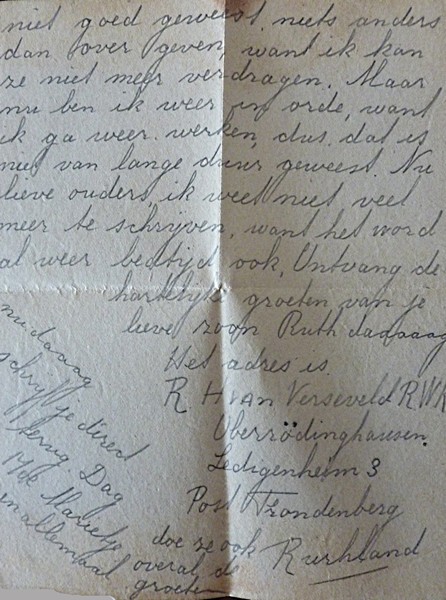 niet goed geweest, niets anders
dan over geven, want ik kan
ze niet meer verdragen. Maar
nu ben ik weer in orde, want
ik ga weer werken, dus dat is
niet van lange duur geweest. Nu
lieve ouders ik weet niet veel
meer te schrijven, want het word
al weer bedtijd ook, Untvang de
hartelijke groeten van je
lieve zoon Ruth daaaag
Het adres is
R H van Verseveld RWK
Oberrödinghausen
Ledigenheim 3
Post Frondenberg
Rurhland
nu daaag
schrijf je direct
terug Dag
Moe Marietje
en allemaal
doe ze ook
overal de
groeten